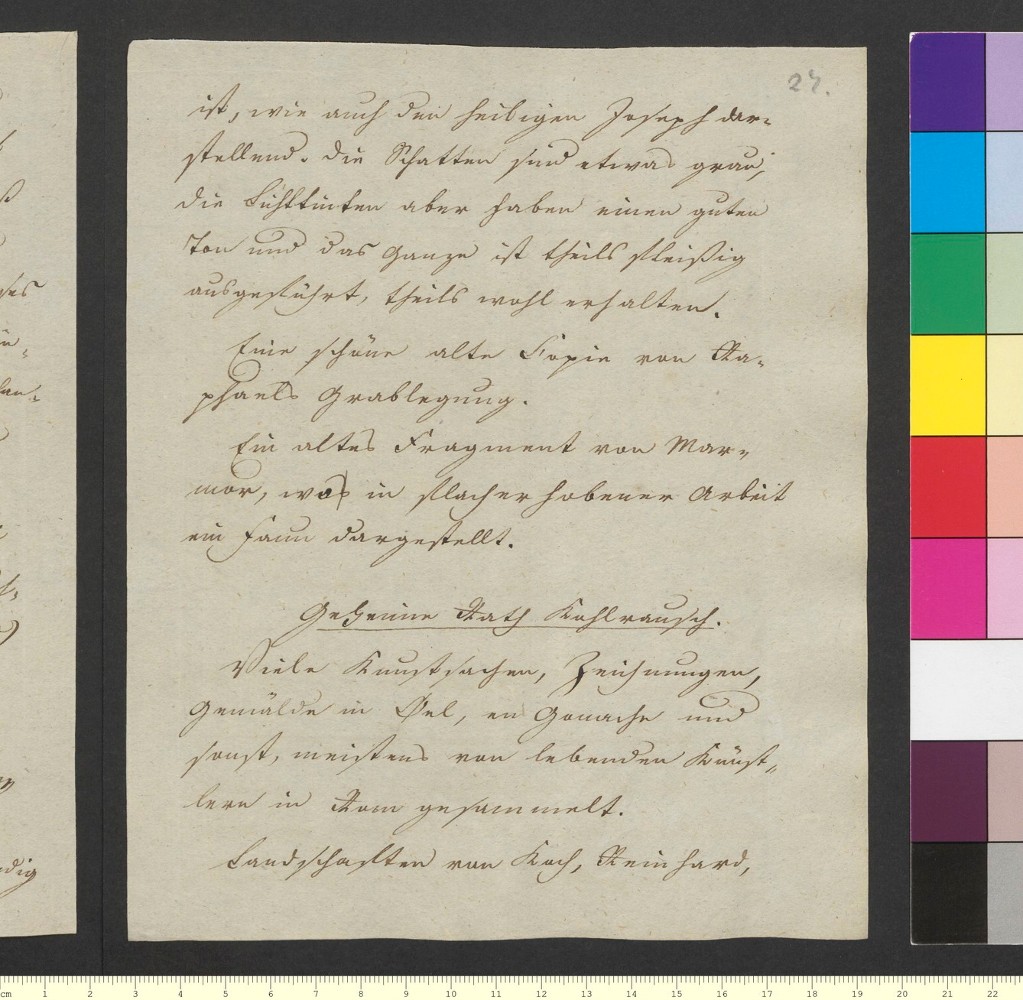 27.
ist, wie auch den heiligen Joseph dar-
stellend. Die Schatten sind etwas grau,
die Lichttinten aber haben einen guten
Ton und das Ganze ist theils fleißig
ausgeführt, theils wohl erhalten.
Eine schöne alte Copie von Ra-
phaels Grablegung.
Ein altes Fragment von Mar-
mor, wo in flacherhobener Arbeit
ein Faun dargestellt.
Geheime Rath Kohlrausch.
Viele Kunstsachen, Zeichnungen,
Gemälde in Oel, en Gouache und
sonst, meistens von lebenden Künst-
lern in Rom gesammelt.
Landschaften von Koch, Reinhard,